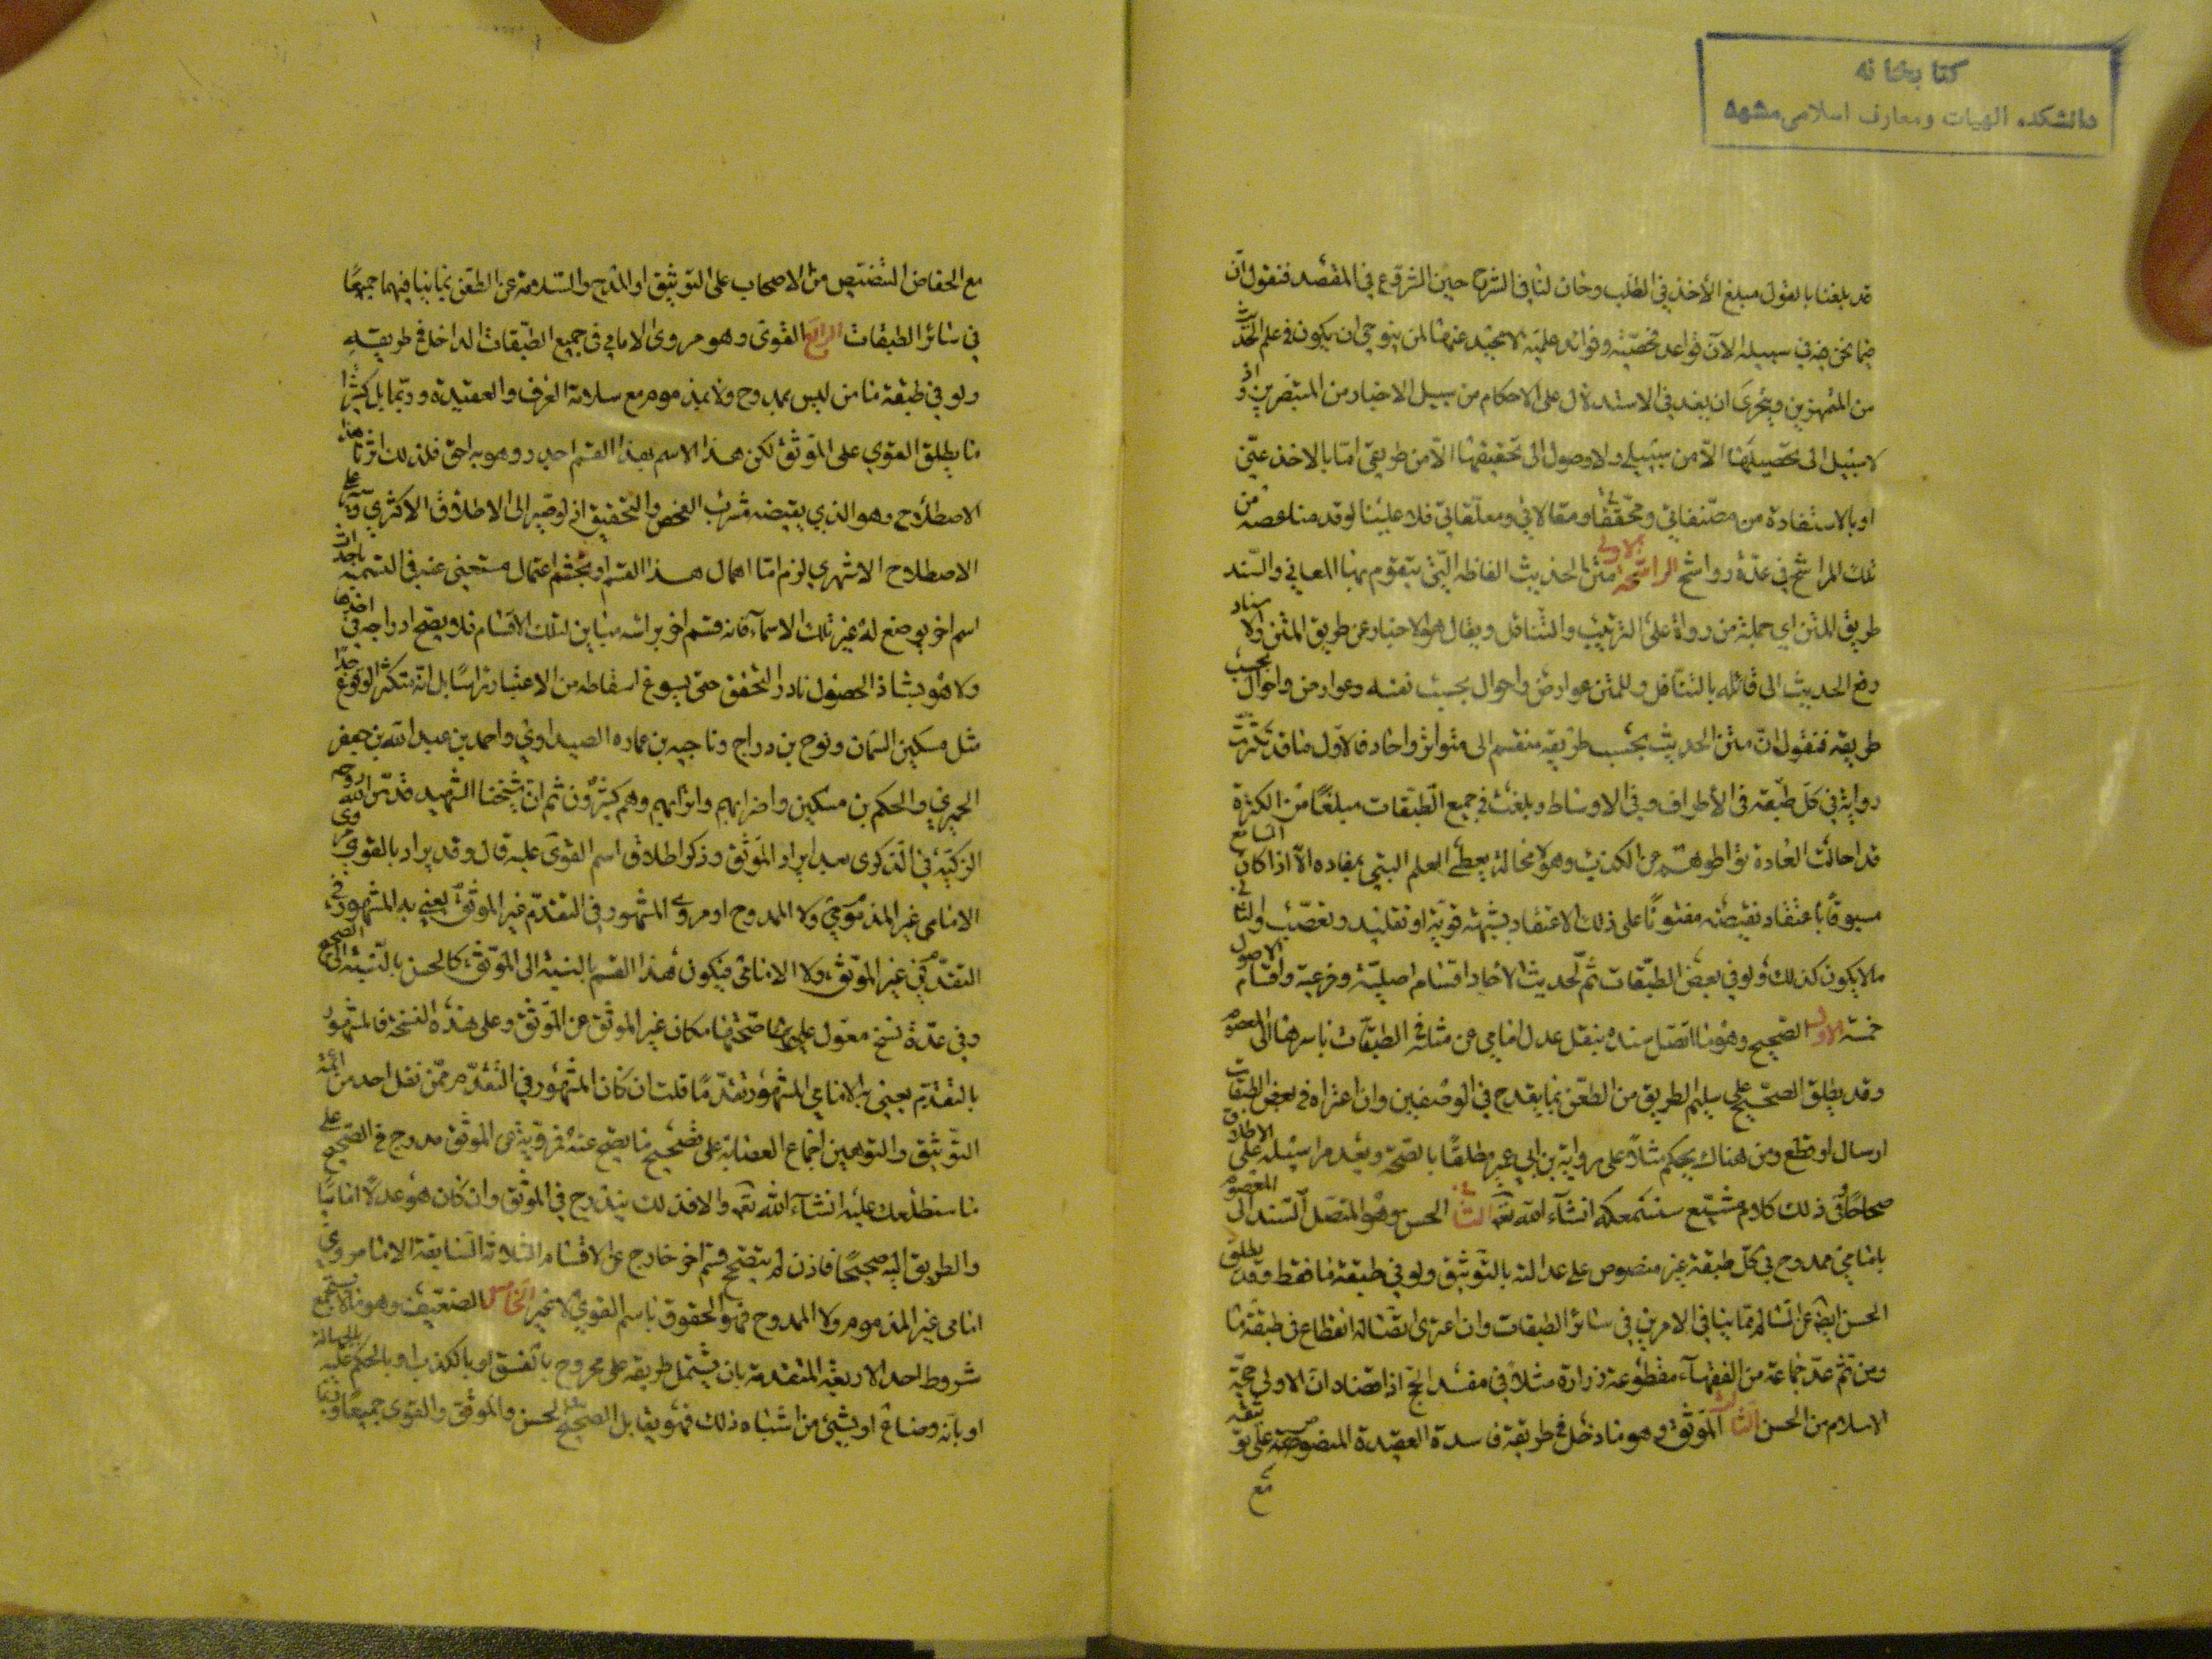 كتابخانه
دانشكده الهيات ومعارف اسلامى مشهد
قد بلغنا بالقول مبلغ الأخذ في الطلب وحان لنا في الشرح حين الشروع في المقصد فنقول ان
فيما نحن فيه في سبيله الآن قواعد فحصية وفوائد علمية لا محيد عنها لمن ينوخى ان يكون في علم الحديث
من المتمهرين ويتحرى ان يعد في الاستدلال على الاحكام من سبيل الاخبار من المتبصرين واذ
لا سبيل الى تحصيلها الا من سبيلي ولا وصول الى تحقيقها الا من طريقى امّا بالاخذ عنّي
او بالاستفادة من مصنفاتي ومحققاتي ومقالاتي ومعلقاتي فلا علينا لوقد من
تلك المراشح في عدّة رواشح الراشحة الاولى متن الحديث الفاظه التي يتقوم بها المعاني والسند
طريق المتن اي جملة من رواه على الترتيب والتناقل ويقال هو الاخبار عن طريق المتن والاسناد
رفع الحديث الى قائله بالتناقل وللمتن عوارض واحوال بحسب نفسه وعوارض واحوال بحسب
طريقه فنقول ان متن الحديث بحسب طريقه منقسم الى متواتر واحاد فالاول ما قد تكثرت
رواية في كل طبقة في الأطراف وفي الاوساط وبلغت في جميع الطبقات مبلغًا من الكثرة
قد احالت العادة تواطوهم عن الكذب وهو لا محالة يعطي العلم البتي بمفاده الا اذا كان السامع
مسبوقًا باعتقاد نقيضه مفتونًا على ذلك الاعتقاد بشبهة قوية او تقليد وتعصب والثاني
ما لا يكون كذلك ولو في بعض الطبقات ثم لحديث الاحاد اقسام اصلية وفرعية واقسام الاصول
خمسة الاول الصحيح وهو ما اتصل سنده بنقل عدل امامي عن مثله في الطبقات باسرها الى المعصوم
وقد يطلق الصحيح على سليم الطريق من الطعن بما يقدح في الوصفين وان اعتراه في بعض الطبقات
ارسال او قطع ومن هناك يحكم مثلًا على رواية بن ابي عمير مطلقًا بالصحة ويعد مراسيله على الاطلاق
صحاحًا وفي ذلك كلام مشبع سنسمعكه انشآء الله تعالى الثاني الحسن وهو المتصل السند الى المعصوم
بامامي ممدوح في كل طبقة غير منصوص على عدالته بالتوثيق ولو في طبقة ما فقط وقد يطلق
الحسن ايضًا على السالم مما ينافي الامرين في سائر الطبقات وان اعترى اتصاله انقطاع في طبقة ما
ومن ثم عدّ جماعة من الفقهآء مقطوعة زرارة مثلًا في مفسد الحج اذا قضاه ان الاولى حجة
الاسلام من الحسن الثالث الموثق وهو ما دخل في طريقه فاسد العقيدة المنصوص على توثيقه
مع
مع انحفاض التنصيص من الاصحاب على التوثيق او المدح والسلامة عن الطعن بما ينافيهما جميعًا
في سائر الطبقات الرابع القوى وهو مروى الامامي في جميع الطبقات الداخل في طريقه
ولو في طبقة ما من ليس بممدوح ولا بمذموم مع سلامة الطرف والعقيدة وربما بل كثيرًا
ما يطلق القوي على الموثق لكن هذا الاسم بهذا القسم اجدر وهو به احق فلذلك اثرنا هذا
الاصطلاح وهو الذي يقتضيه مشرب الفحص والتحقيق اذ لو صير الى الاطلاق الاكثري على
الاصطلاح الاشهري لزم امّا اهمال هذا القسم او تجشم اعتمال مستغنى عنه في التسمية باحداث
اسم اخر يوضع له غير تلك الاسمآء فانه قسم اخر براسه مباين لتلك الاقسام فلا يصح ادراجه في احدها
ولا هو بشاذ الحصول نادر التحقق حتى يسوغ اسقاطه من الاعتبار راسًا بل انه متكثر الوقوع جدًا
مثل مسكين السمان ونوح بن دراج وناجيه بن عماره الصيداوي واحمد بن عبد الله بن جعفر
الحميري والحكم بن مسكين واضرابهم واترابهم وهم كثيرون ثم ان شيخنا الشهيد قدس الله روحه
الزكية في الذكرى بعد ايراد الموثق وذكر اطلاق اسم القوى عليه قال وقد يراد بالقوي مروى
الامامى غير المذموم ولا الممدوح او مروي المشهور في التقدم غير الموثق يعني به المشهور في
التقدم في غير الموثق ولا الامامى فيكون هذا القسم بالنسبة الى الموثق كالحسن بالنسبة الى الصحيح
وفي عدّة نسخ معوّل على صحتها مكان غير الموثق عن الموثق وعلى هذه النسخة فالمشهور
بالتقديم يعنى به الامامي المشهور تقدمًا قلت ان كان المشهور في التقدم ممن نقل احد من ائمة
التوثيق والتوهين اجماع العصابة على تصحيح ما يصح عنه فرويه عن الموثق مدرج في الصحيح على
ما سنطلعك عليه انشآء الله تعالى والا فذلك يندرج في الموثق وان كان هو عدلًا اماميًا
والطريق اليه صحيحًا فاذن لم يتضح قسم اخر خارج عن الاقسام الثلاثة السابقة الا مامروي
امامى غير المذموم ولا الممدوح فهو الحقوق باسم القوي لا غير الخامس الضعيف وهو ما لا يستجمع
شروط احد الاربعة المتقدمة بان يشتمل طريقه على مجروح بالفسق او بالكذب او بالحكم عليه بالجهالة
او بانه وضاع او بشئ من اشباه ذلك فهو يقابل الصحيح والحسن والموثق والقوى جميعًا وربما